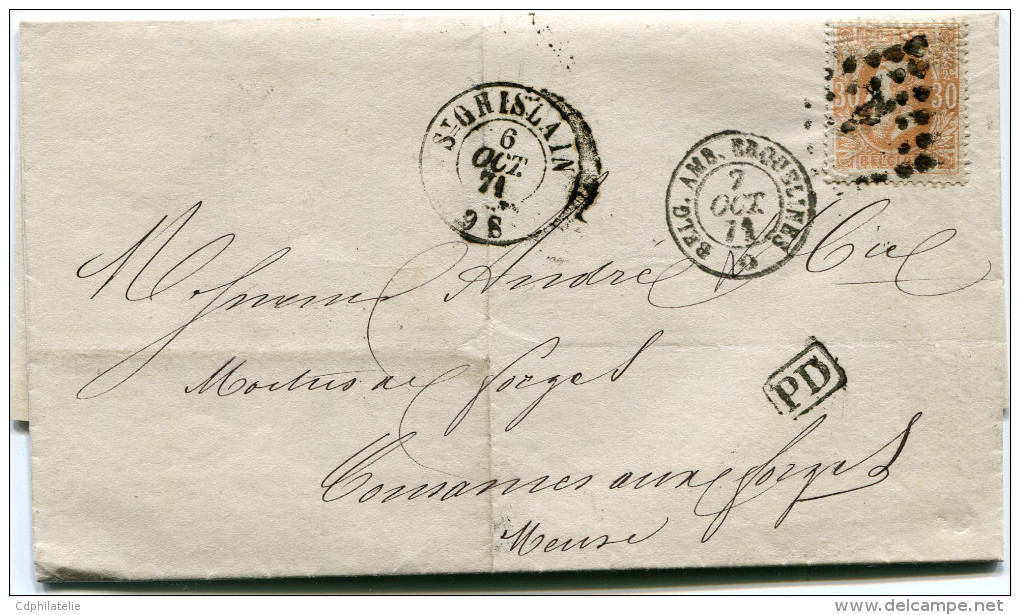 30 30
BELGIQUE
ST GHISLAIN
6
OCT.
71
9 S
BELG. AMB. ERQUELINES
7
OCT.
71
Messieurs André & Cie
Maîtres de forges
Cousances aux forges
Meuse
PD
Cdphilatelie
delcampe.net